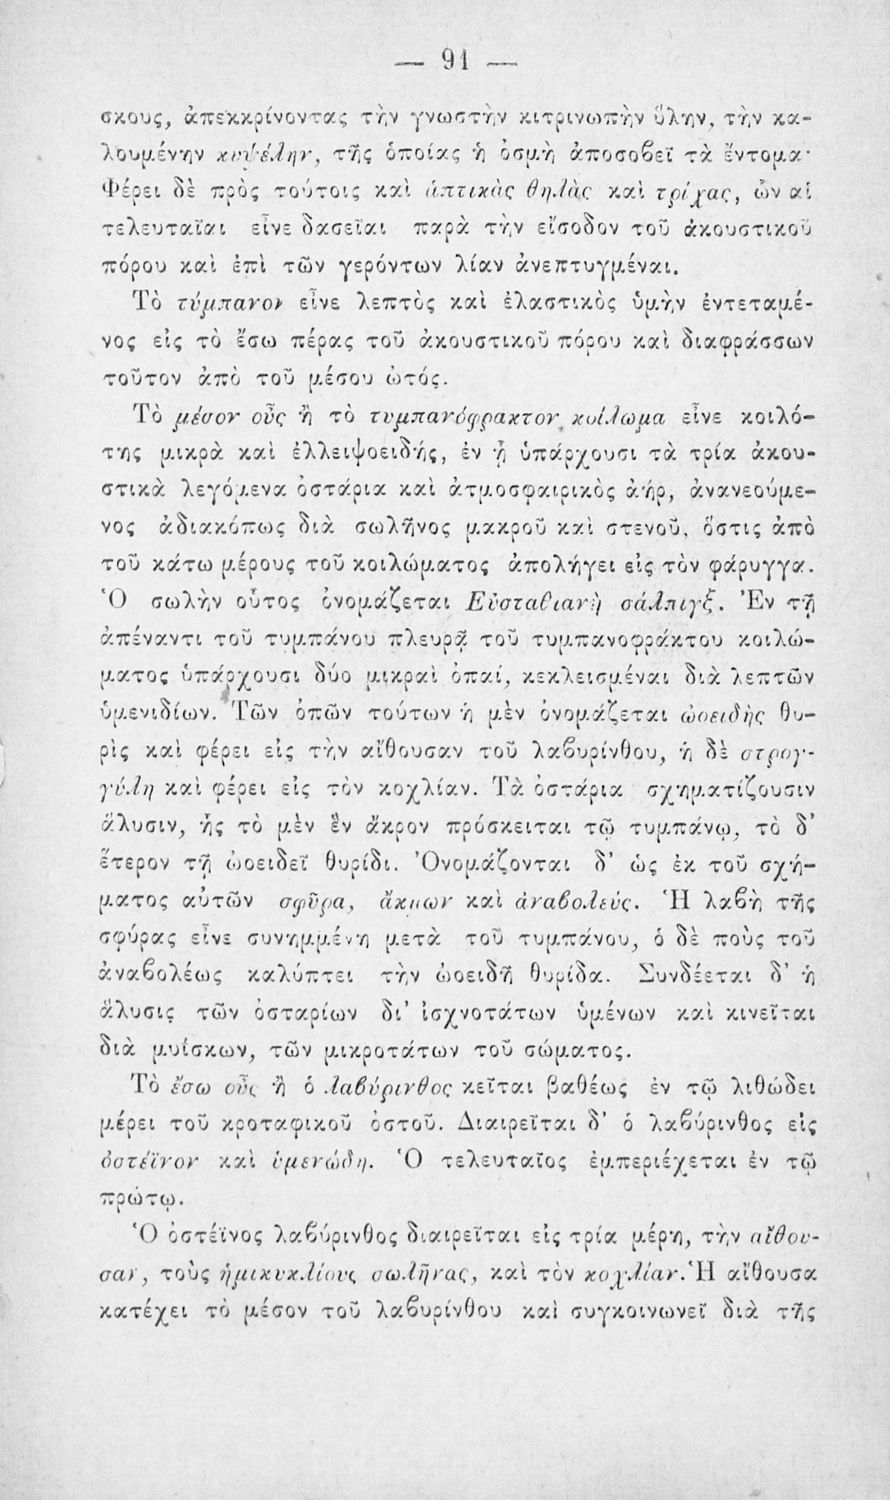 — 91 —
σκους, ἀπεκκρίνοντας τὴν γνωστὴν κιτρινωπὴν ὕλην, τὴν κα-
λουμένην κυψέλην, τῆς ὁποίας ἡ ὀσμὴ ἀποσοβεῖ τὰ ἔντομα·
Φέρει δὲ πρὸς τούτοις καὶ ἁπτικὰς θηλὰς καὶ τρίχας, ὧν αἱ
τελευταῖαι εἶνε δασεῖαι παρὰ τὴν εἴσοδον τοῦ ἀκουστικοῦ
πόρου καὶ ἐπὶ τῶν γερόντων λίαν ἀνεπτυγμέναι.
Τὸ τύμπανον εἶνε λεπτὸς καὶ ἐλαστικὸς ὑμὴν ἐντεταμέ-
νος εἰς τὸ ἔσω πέρας τοῦ ἀκουστικοῦ πόρου καὶ διαφράσσων
τοῦτον ἀπὸ τοῦ μέσου ὠτός.
Τὸ μέσον οὖς ἢ τὸ τυμπανόφρακτον κοίλωμα εἶνε κοιλό-
της μικρὰ καὶ ἐλλειψοειδής, ἐν ᾗ ὑπάρχουσι τὰ τρία ἀκου-
στικὰ λεγόμενα ὀστάρια καὶ ἀτμοσφαιρικὸς ἀήρ, ἀνανεούμε-
νος ἀδιακόπως διὰ σωλῆνος μακροῦ καὶ στενοῦ, ὅστις ἀπὸ
τοῦ κάτω μέρους τοῦ κοιλώματος ἀπολήγει εἰς τὸν φάρυγγα.
Ὁ σωλὴν οὗτος ὀνομάζεται Εὐσταθιανὴ σάλπιγξ. Ἐν τῇ
ἀπέναντι τοῦ τυμπάνου πλευρᾷ τοῦ τυμπανοφράκτου κοιλώ-
ματος ὑπάρχουσι δύο μικραὶ ὀπαί, κεκλεισμέναι διὰ λεπτῶν
ὑμενιδίων. Τῶν ὀπῶν τούτων ἡ μὲν ὀνομάζεται ὠοειδὴς θυ-
ρὶς καὶ φέρει εἰς τὴν αἴθουσαν τοῦ λαβυρίνθου, ἡ δὲ στρογ-
γύλη καὶ φέρει εἰς τὸν κοχλίαν. Τὰ ὀστάρια σχηματίζουσιν
ἅλυσιν, ἧς τὸ μὲν ἓν ἄκρον πρόσκειται τῷ τυμπάνῳ, τὸ δ'
ἕτερον τῇ ὠοειδεῖ θυρίδι. Ὀνομάζονται δ' ὡς ἐκ τοῦ σχή-
ματος αὐτῶν σφῦρα, ἄκμων καὶ ἀναβολεύς. Ἡ λαβὴ τῆς
σφύρας εἶνε συνημμένη μετὰ τοῦ τυμπάνου, ὁ δὲ ποὺς τοῦ
ἀναβολέως καλύπτει τὴν ὠοειδῆ θυρίδα. Συνδέεται δ' ἡ
ἅλυσις τῶν ὀσταρίων δι' ἰσχνοτάτων ὑμένων καὶ κινεῖται
διὰ μυΐσκων, τῶν μικροτάτων τοῦ σώματος.
Τὸ ἔσω οὖς ἢ ὁ λαβύρινθος κεῖται βαθέως ἐν τῷ λιθώδει
μέρει τοῦ κροταφικοῦ ὀστοῦ. Διαιρεῖται δ' ὁ λαβύρινθος εἰς
ὀστέϊνον καὶ ὑμενώδη. Ὁ τελευταῖος ἐμπεριέχεται ἐν τῷ
πρώτῳ.
Ὁ ὀστέϊνος λαβύρινθος διαιρεῖται εἰς τρία μέρη, τὴν αἴθου-
σαν, τοὺς ἡμικυκλίους σωλῆνας, καὶ τὸν κοχλίαν. Ἡ αἴθουσα
κατέχει τὸ μέσον τοῦ λαβυρίνθου καὶ συγκοινωνεῖ διὰ τῆς